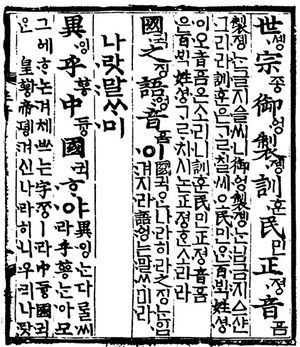 世솅宗종御엉製졩訓훈民민正졍音ᅙᅳᆷ
製졩ᄂᆞᆫ글지ᅀᅳᆯ씨니御엉製졩ᄂᆞᆫ님금지ᅀᅳ샨
그리라訓훈ᄋᆞᆫᄀᆞᄅᆞ칠씨오民민ᄋᆞᆫ百ᄇᆡᆨ姓셩
이오音ᅙᅳᆷ은소리니訓훈民민正졍音ᅙᅳᆷ은百ᄇᆡᆨ
姓셩ᄀᆞᄅᆞ치시논正졍ᄒᆞᆫ소리라
國귁之징語ᅌᅥᆼ音ᅙᅳᆷ이
國귁ᄋᆞᆫ나라히라之징ᄂᆞᆫ입
겨지라語ᅌᅥᆼ는말ᄊᆞ미라
나랏말ᄊᆞ미
異잉乎ᅘᅩᆼ中듕國귁ᄒᆞ야
異잉ᄂᆞᆫ다ᄅᆞᆯ씨
라乎ᅘᅩᆼᄂᆞᆫ아모
그ᅌᅦᄒᆞ논겨체ᄡᅳ는字ᄍᆞᆼㅣ라中듕國귁
ᄋᆞᆫ皇ᅘᅪᆼ帝뎽겨신나라히니우리나랏